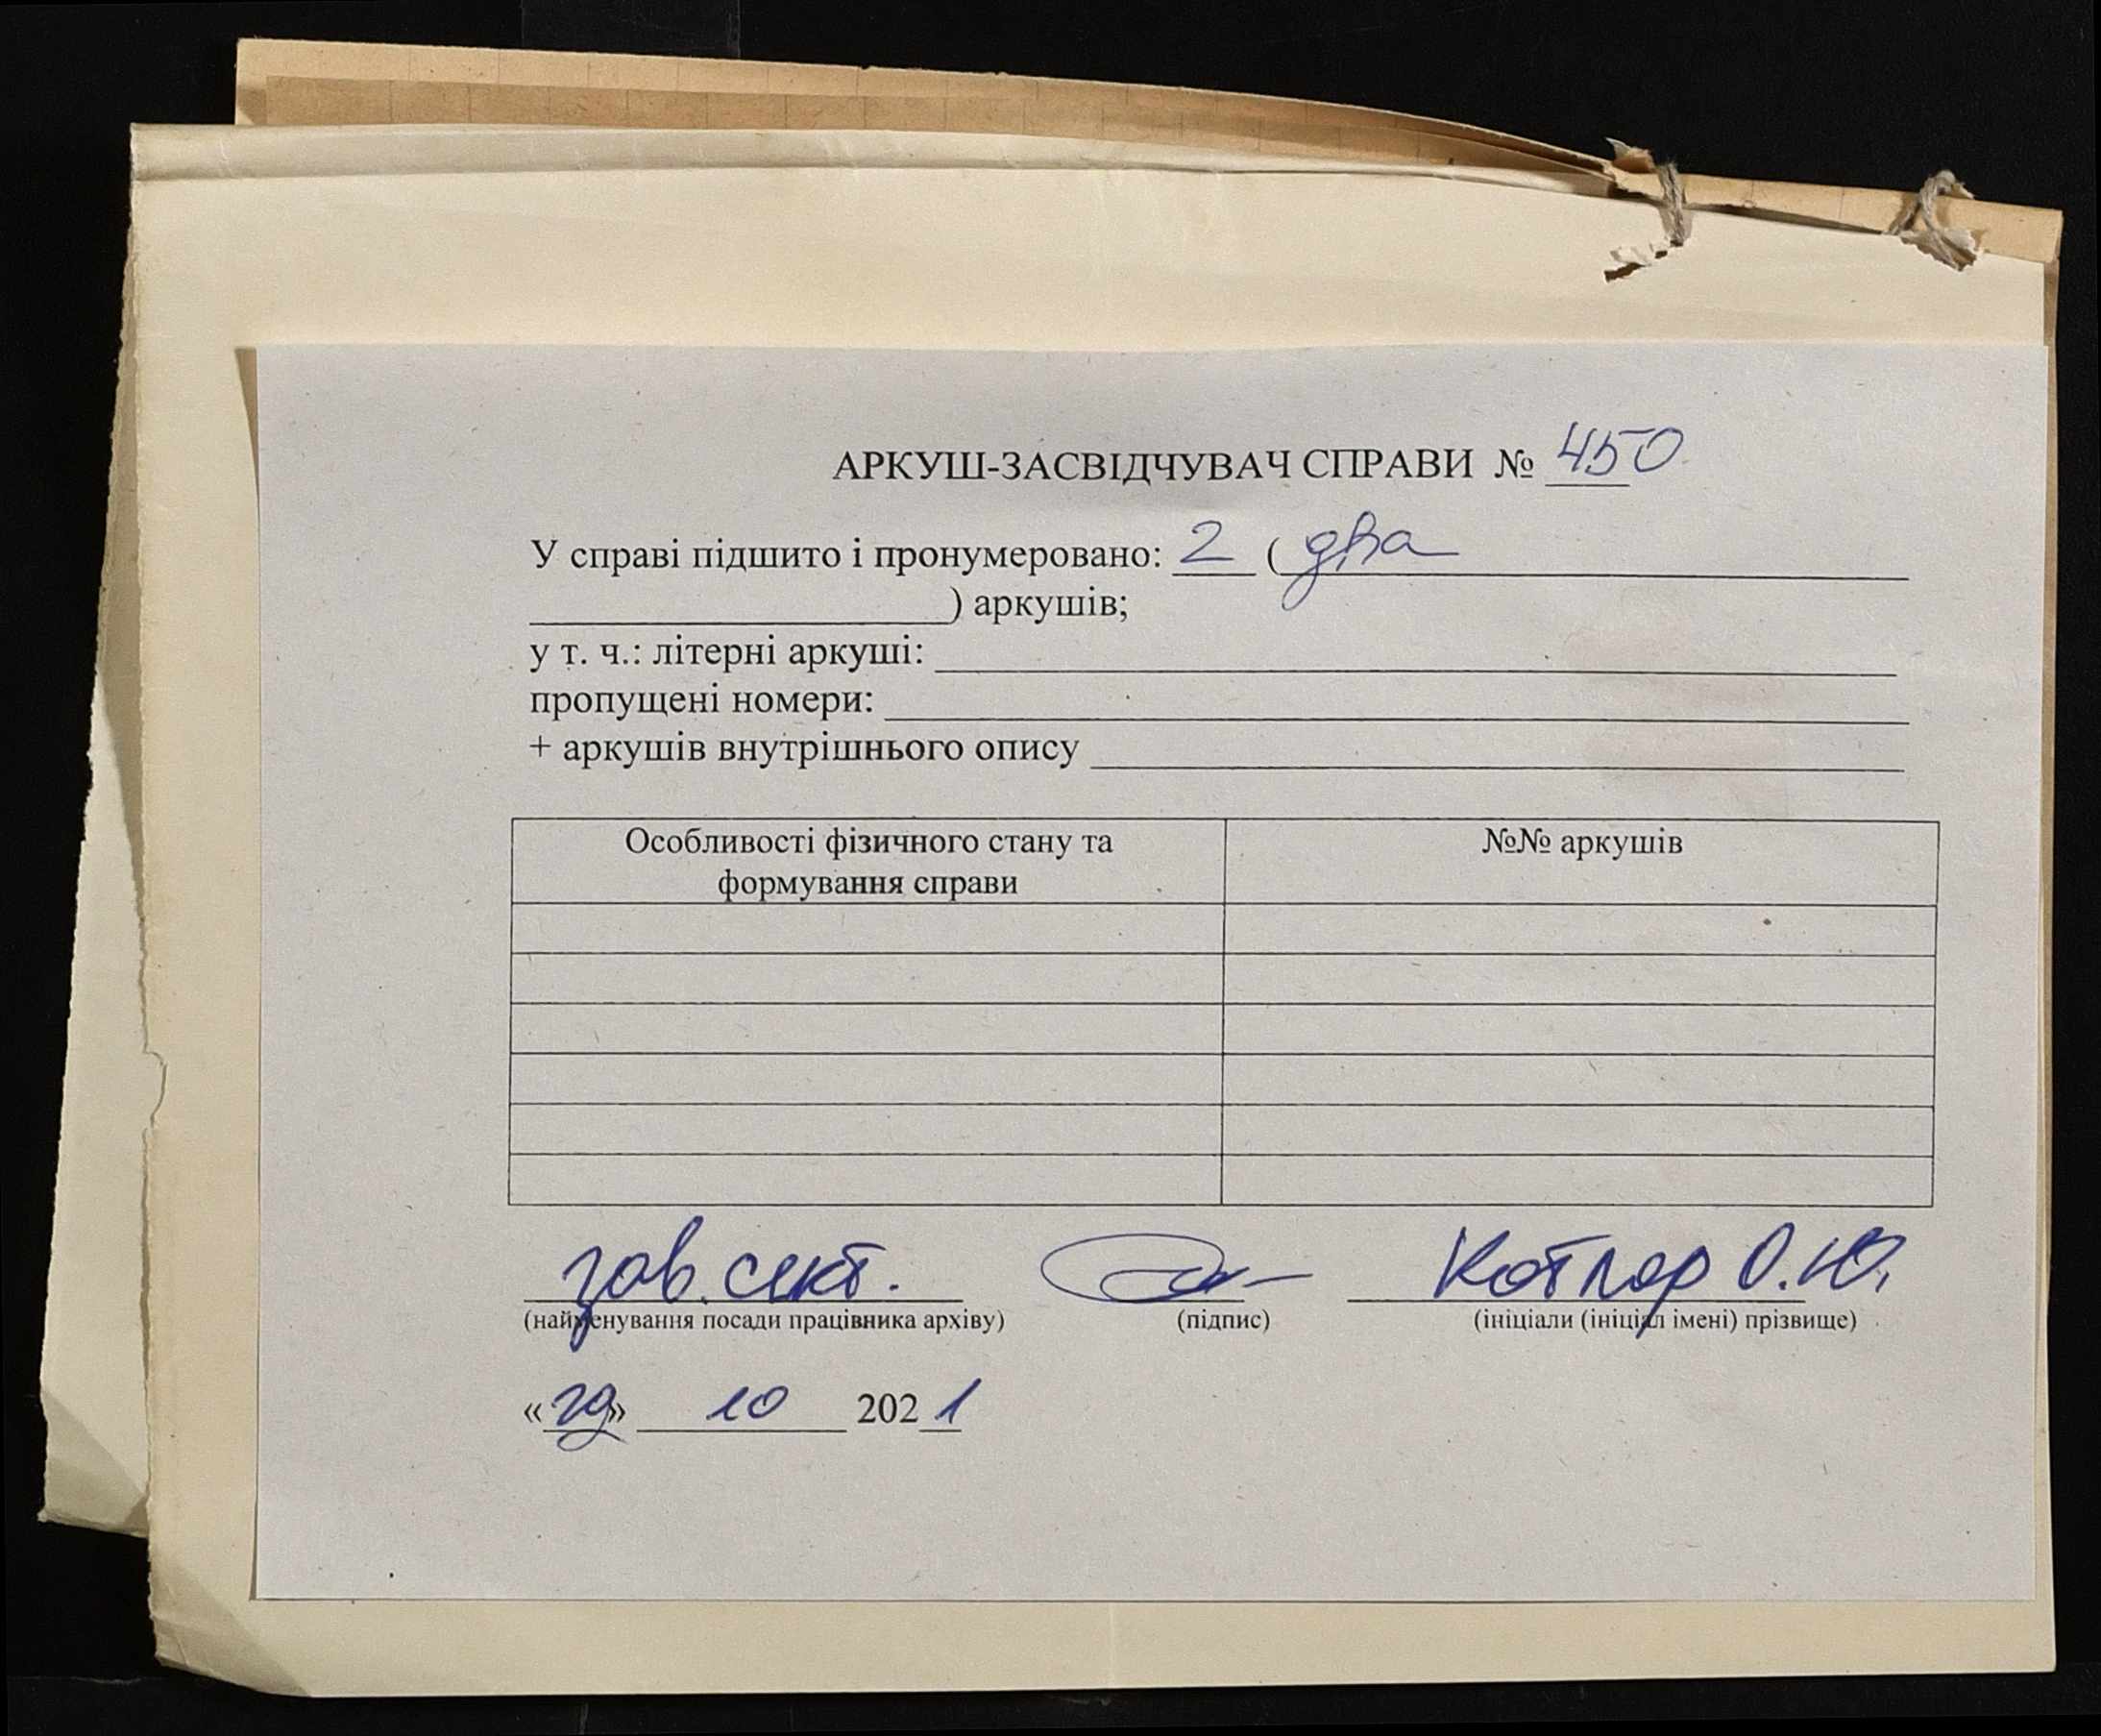 АРКУШ-ЗАСВІДЧУВАЧ СПРАВИ № 450
У справі підшито і пронумеровано: 2 ( два
) аркушів;
у т. ч.: літерні аркуші:
пропущені номери:
+ аркушів внутрішнього опису
Особливості фізичного стану та
формування справи
№№ аркушів
зав. сект. Котляр О.Ю.
(найменування посади працівника архіву) (підпис) (ініціали (ініціал імені) прізвище)
«29» 10 2021